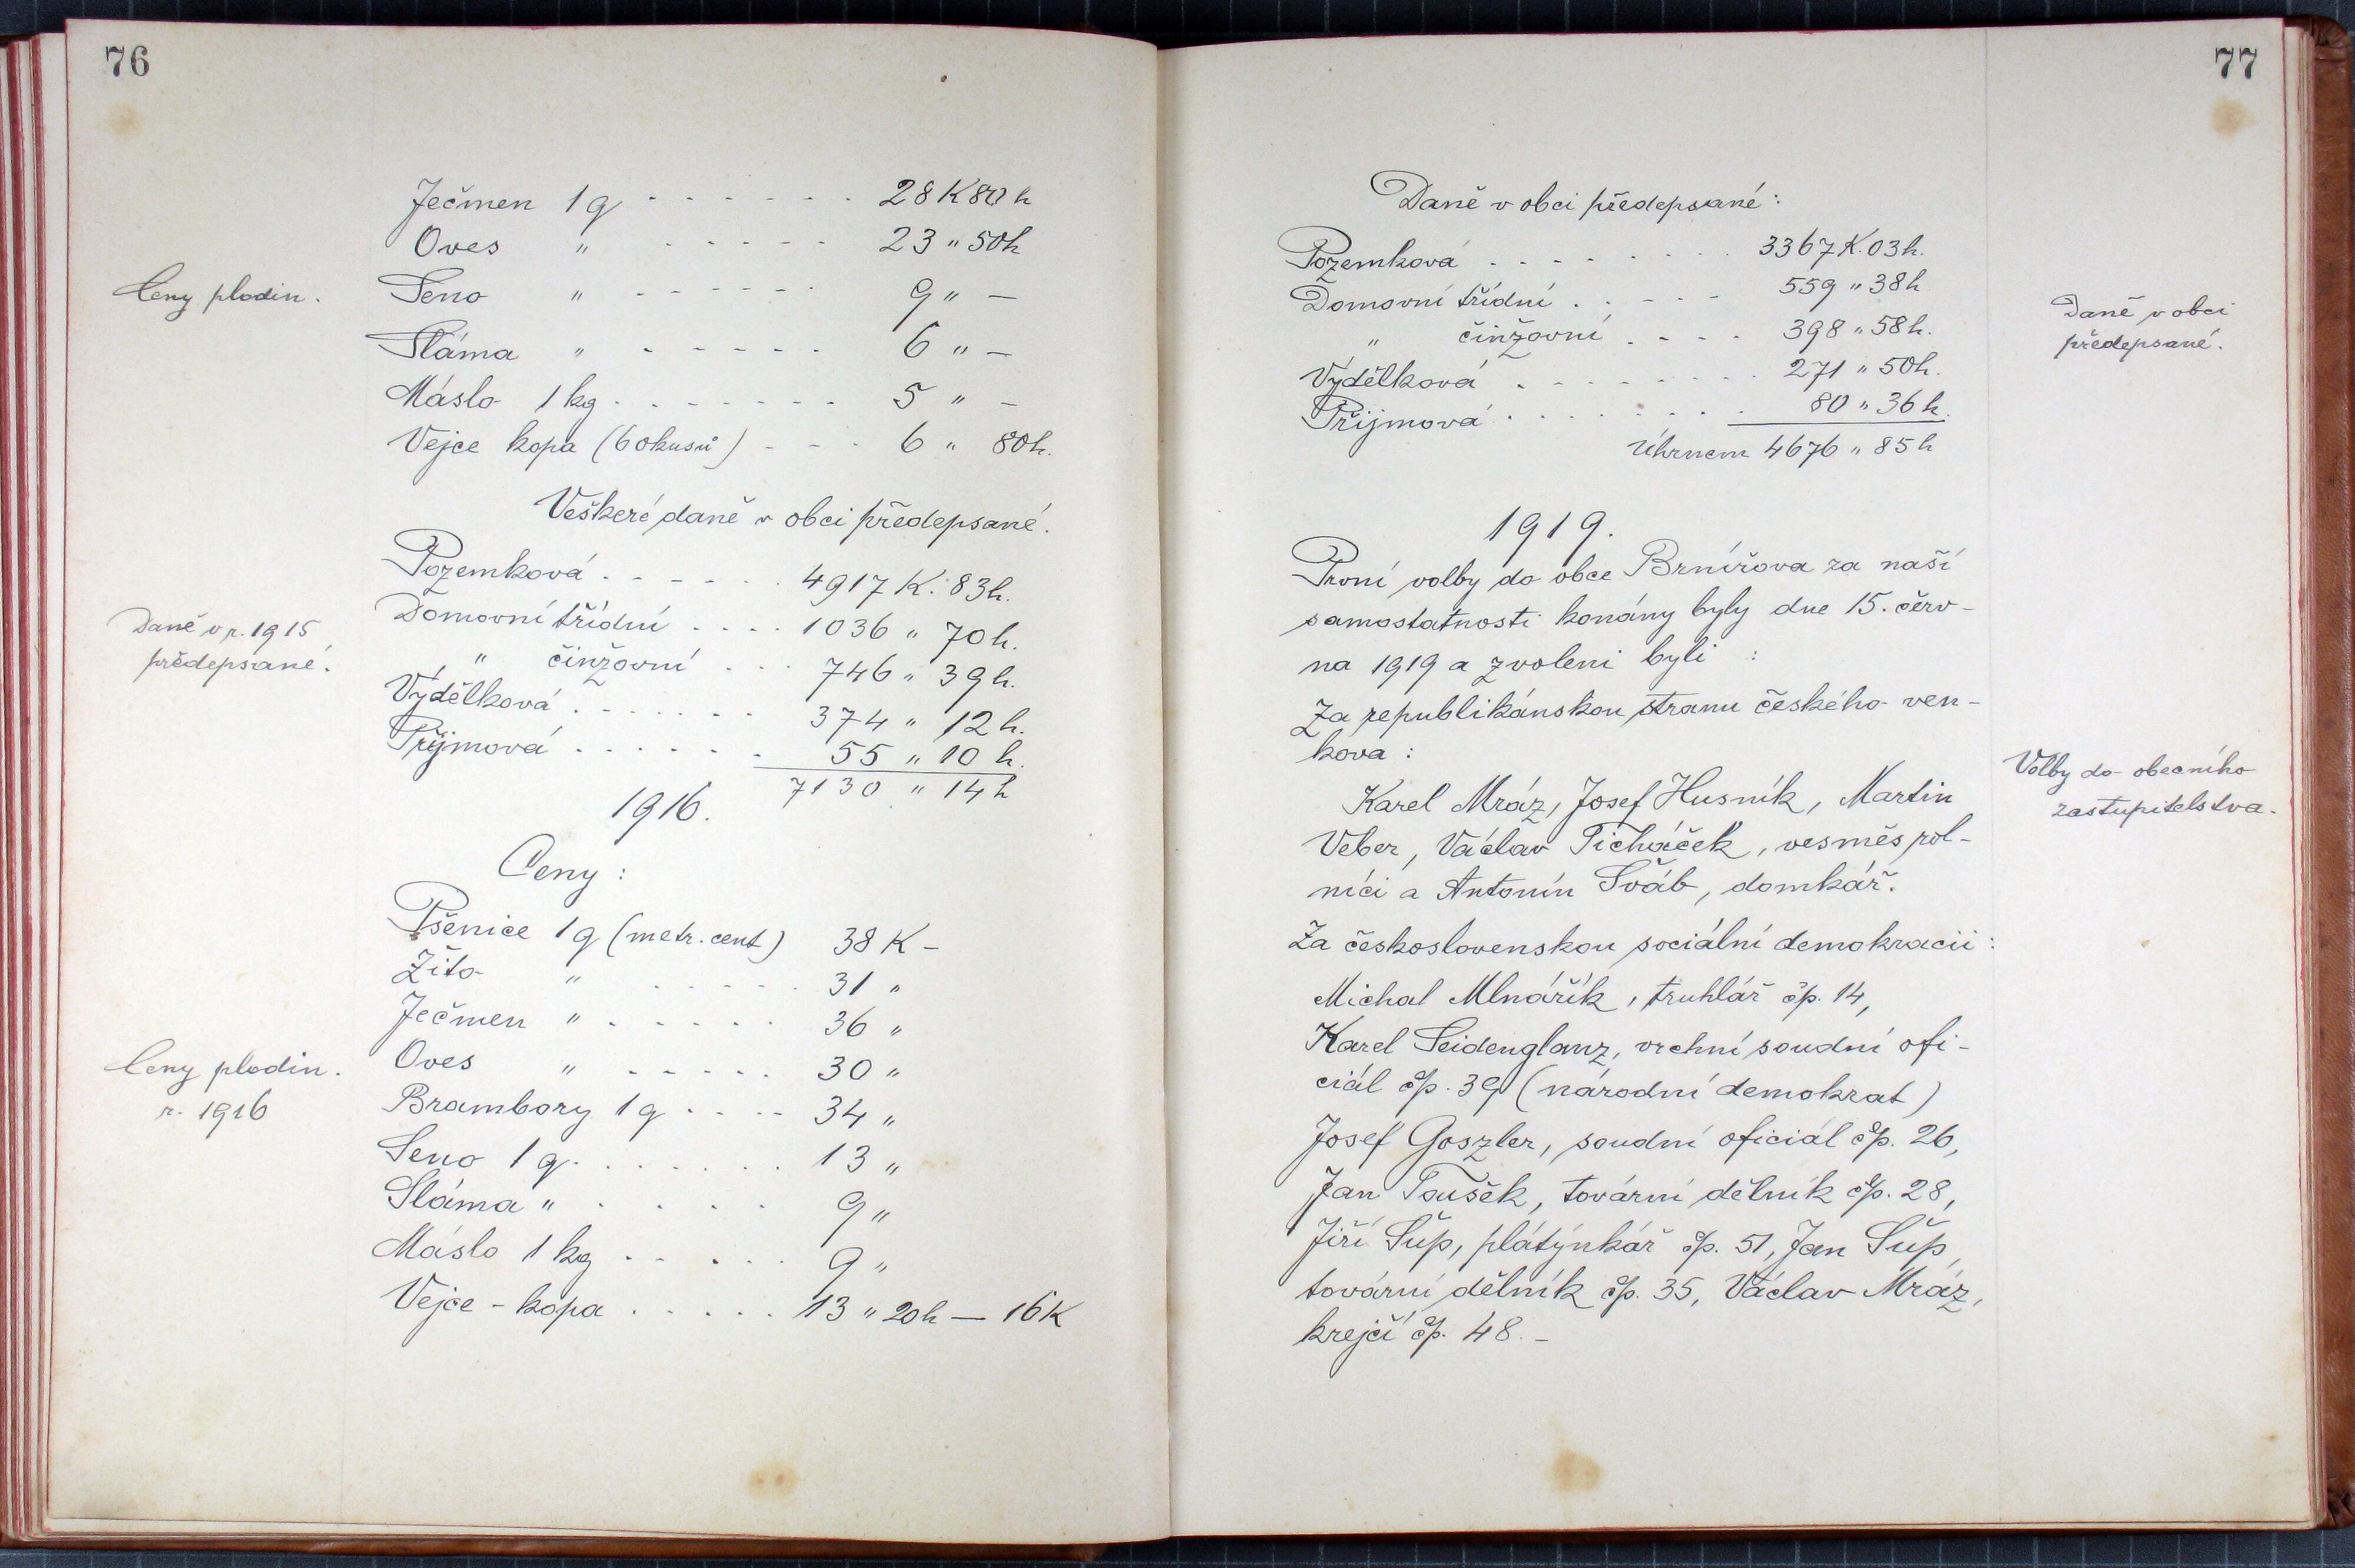 76
Ječmen 1 q - - - - - - 28 K 80 h
Oves " - - - - - 23 " 50 h
Ceny plodin.
Seno " - - - - - - 9 " —
Sláma " - - - - - - 6 " —
Máslo 1 kg - - - - - - - 5 " —
Vejce kopa (60kusů) - - - 6 " 80 h.
Veškeré daně v obci předepsané.
Pozemková . - - - - - 4917 K. 83 h.
Domovní třídní - - - - 1036 " 70 h.
Daně v r. 1915
předepsané.
" činžovní - - - 746 " 39 h.
Výdělková . - - - - - - 374 " 12 h.
Příjmová . . . . . . - 55 " 10 h.
7130 " 14 h
1916.
Ceny :
Pšenice 1 q (metr. cent) 38 K –
Žito " - - - - - - 31 "
Ječmen " - - - - - - 36 "
Ceny plodin.
r. 1916
Oves " - - - - - 30 "
Brambory 1 q - - - - 34 "
Seno 1 q . . . . . . . 13 "
Sláma " . . . . . 9 "
Máslo 1 kg - - - - - 9 "
Vejce – kopa . . . . . 13 " 20 h — 16 K
77
Daně v obci předepsané :
Pozemková . - - - - - - - 3367 K. 03 h.
Domovní třídní . - - - - 559 " 38 h
Daně v obci
předepsané.
" činžovní . - - - 398 " 58 h.
Výdělková . - - - - - - - 271 " 50 h.
Příjmová . . . . . . . . 80 " 36 h.
Úhrnem 4676 " 85 h
1919.
První volby do obce Brnířova za naší
samostatnosti konány byly dne 15. červ-
na 1919 a zvoleni byli :
Za republikánskou stranu českého ven-
kova :
Volby do obecního
zastupitelstva.
Karel Mráz, Josef Husník, Martin
Veber, Václav Ticháček, vesměs rol-
níci a Antonín Šváb, domkář.
Za československou sociální demokracii :
Michal Mlnářík, truhlář čp. 14,
Karel Seidenglanz, vrchní soudní ofi-
ciál čp. 39 (národní demokrat)
Josef Goszler, soudní oficiál čp. 26,
Jan Toušek, tovární dělník čp. 28,
Jiří Šup, plátýnkář čp. 51, Jan Šup,
tovární dělník čp. 35, Václav Mráz,
krejčí čp. 48. –